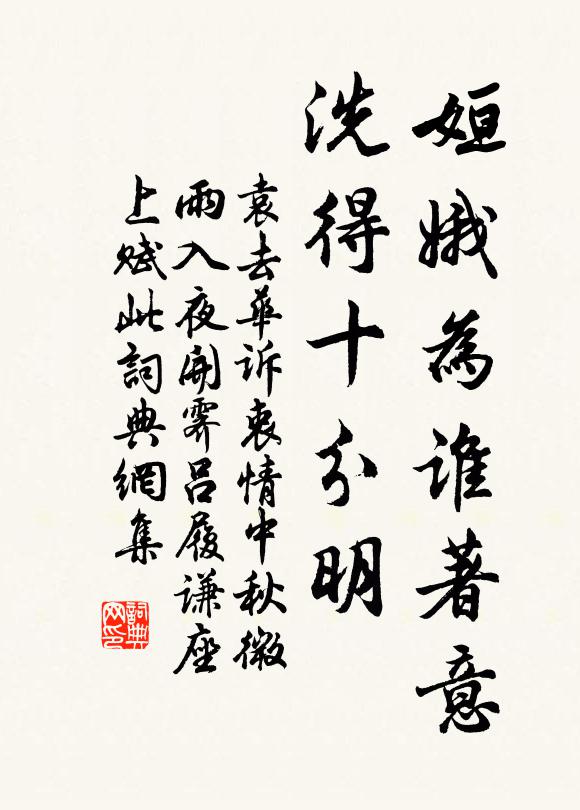 姮娥為誰著意
洗得十分明
袁去華訴衷情中秋微
雨入夜開霽呂履謙座
上賦此詞典網集
詞典網印